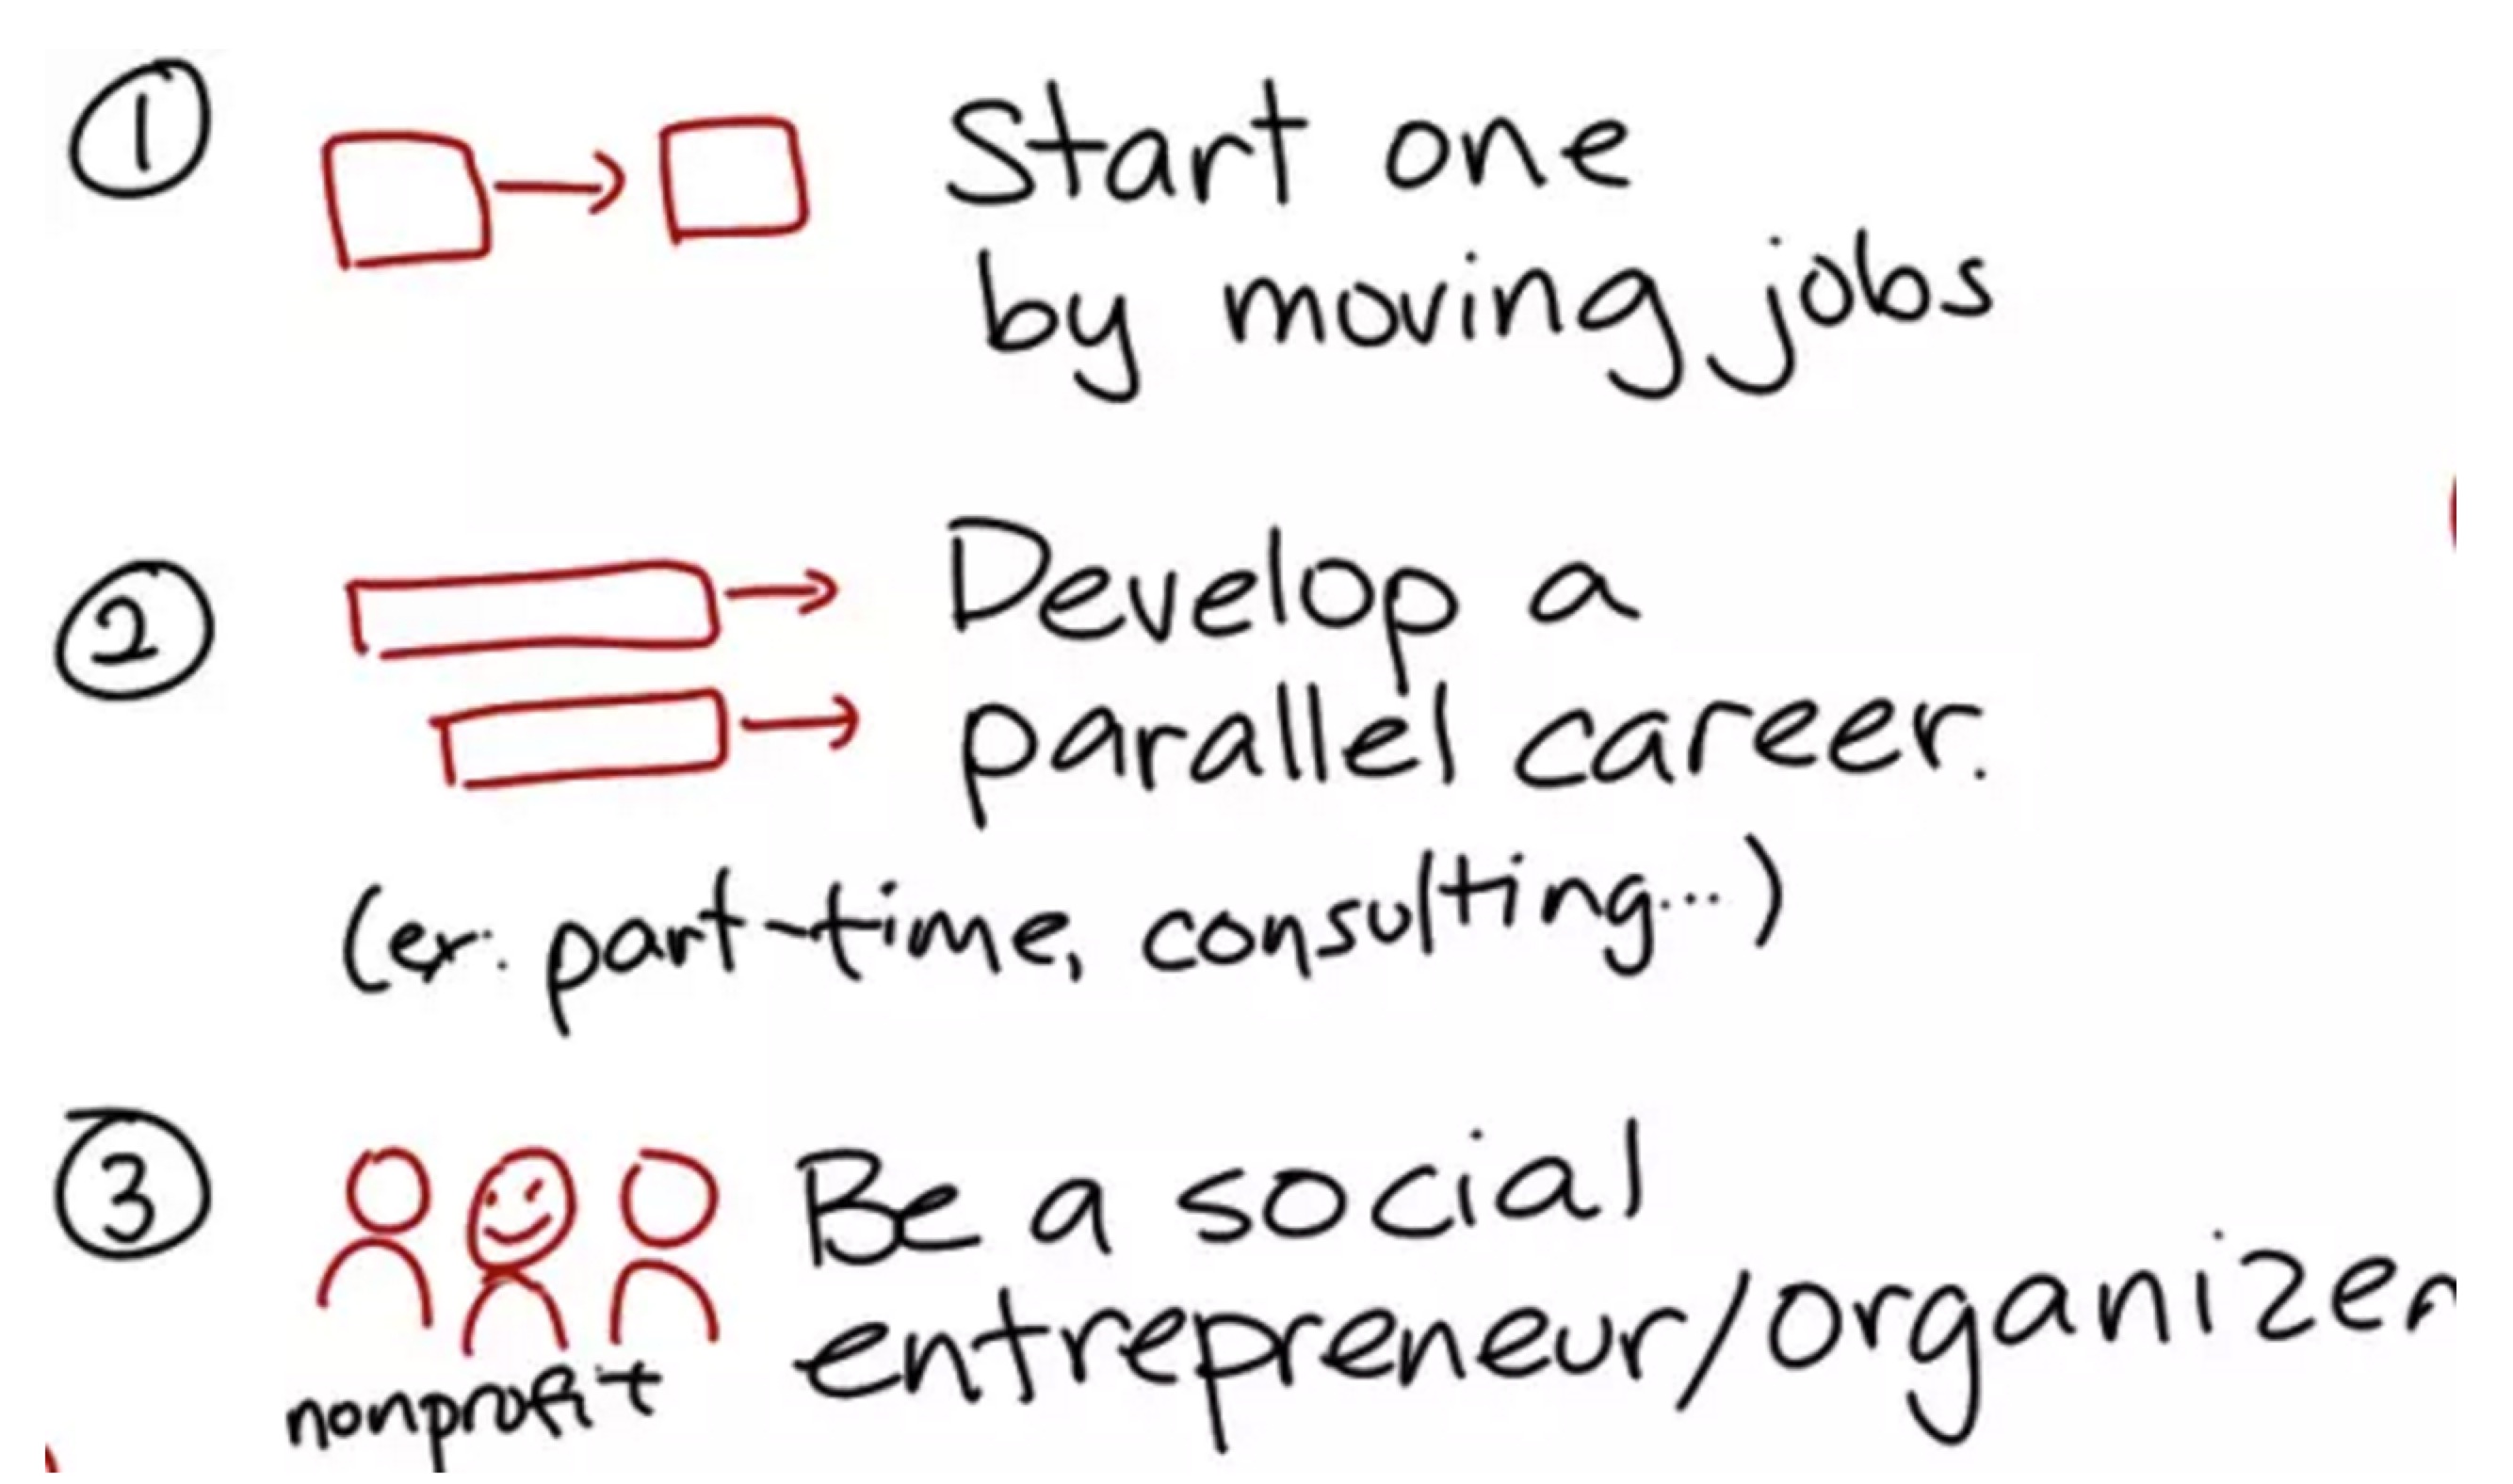 ① Start one
by moving jobs
② Develop a
parallel career.
(ex. part-time, consulting...)
③ Be a social
entrepreneur/organizer
nonprofit